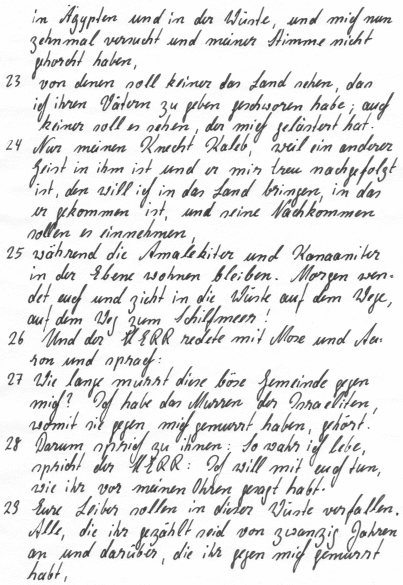 in Ägypten und in der Wüste, und mich nun
zehnmal versucht und meiner Stimme nicht
gehorcht haben,
23 von denen soll keiner das Land sehen, das
ich ihren Vätern zu geben geschworen habe; auch
keiner soll es sehen, der mich gelästert hat.
24 Nur meinen Knecht Kaleb, weil ein anderer
Geist in ihm ist und er mir treu nachgefolgt
ist, den will ich in das Land bringen, in das
er gekommen ist, und seine Nachkommen
sollen es einnehmen,
25 während die Amalekiter und Kanaaniter
in der Ebene wohnen bleiben. Morgen wen=
det euch und zieht in die Wüste auf dem Wege,
auf dem Weg zum Schilfmeer!
26 Und der HERR redete mit Mose und Aa=
ron und sprach:
27 Wie lange murrt diese böse Gemeinde gegen
mich? Ich habe das Murren der Israeliten,
womit sie gegen mich gemurrt haben, gehört.
28 Darum sprich zu ihnen: So wahr ich lebe,
spricht der HERR: Ich will mit euch tun,
wie ihr vor meinen Ohren gesagt habt.
29 Eure Leiber sollen in dieser Wüste verfallen.
Alle, die ihr gezählt seid von zwanzig Jahren
an und darüber, die ihr gegen mich gemurrt
habt,